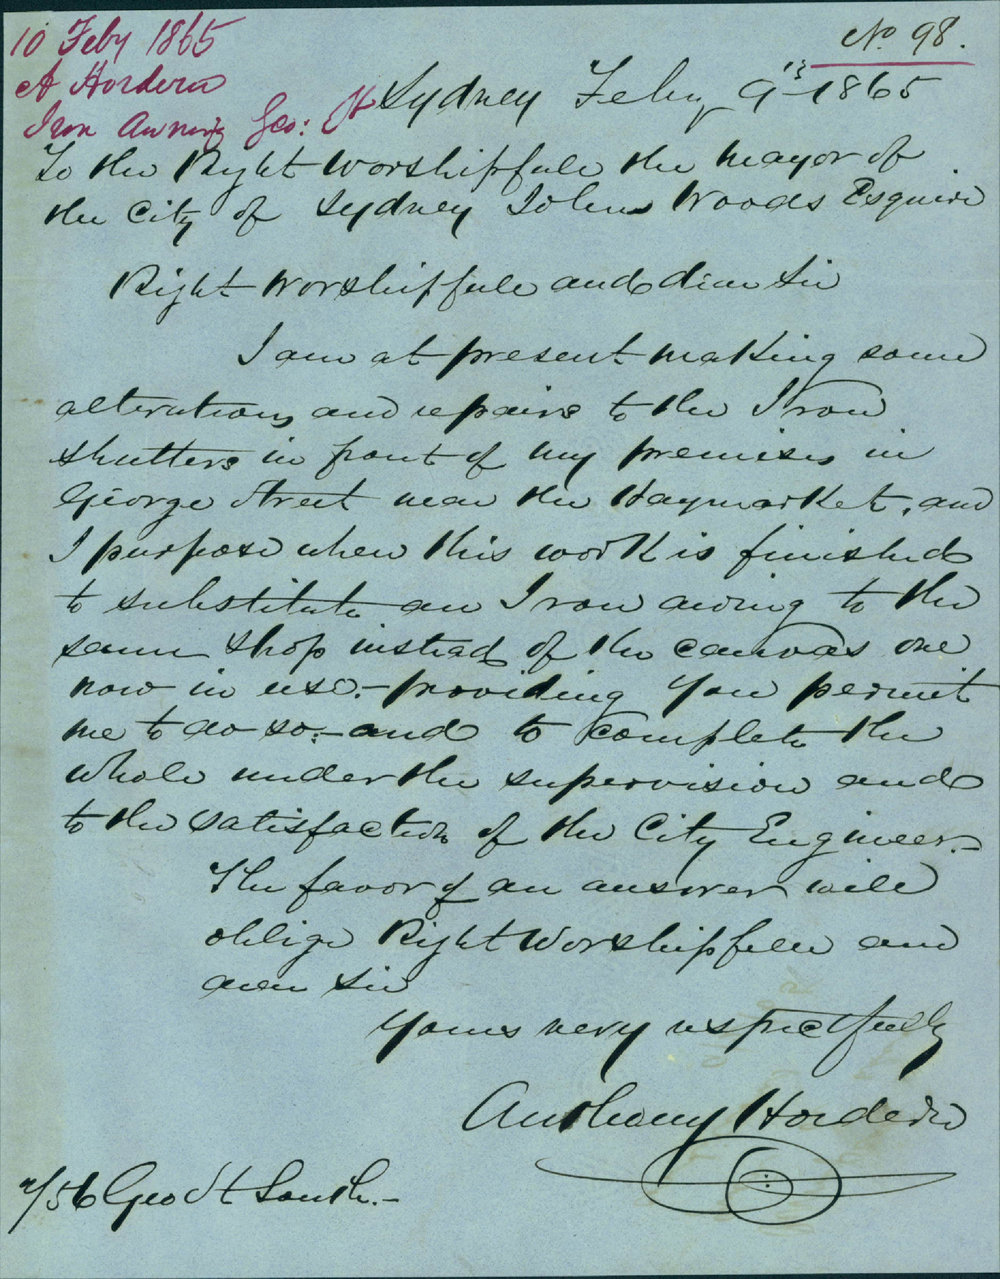 10 Feby 1865
A Hordern
Iron Awning Geo: St
No. 98.
Sydney Feby 9th 1865
To the Right Worshipfull the Mayor of
the City of Sydney John Woods Esquire
Right Worshipfull and dear Sir
I am at present making some
alterations and repairs to the Iron
Shutters in front of my premises in
George Street near the Haymarket, and
I purpose when this work is finished
to substitute an Iron awing to the
same shop instead of the canvas one
now in use.- providing You permit
me to do so:- and to complete the
whole under the supervision and
to the satisfaction of the City Engineer.-
The favor of an answer will
oblige Right Worshipfull and
dear Sir
Yours very respectfully
Anthony Hordern
756 Geo St South.-